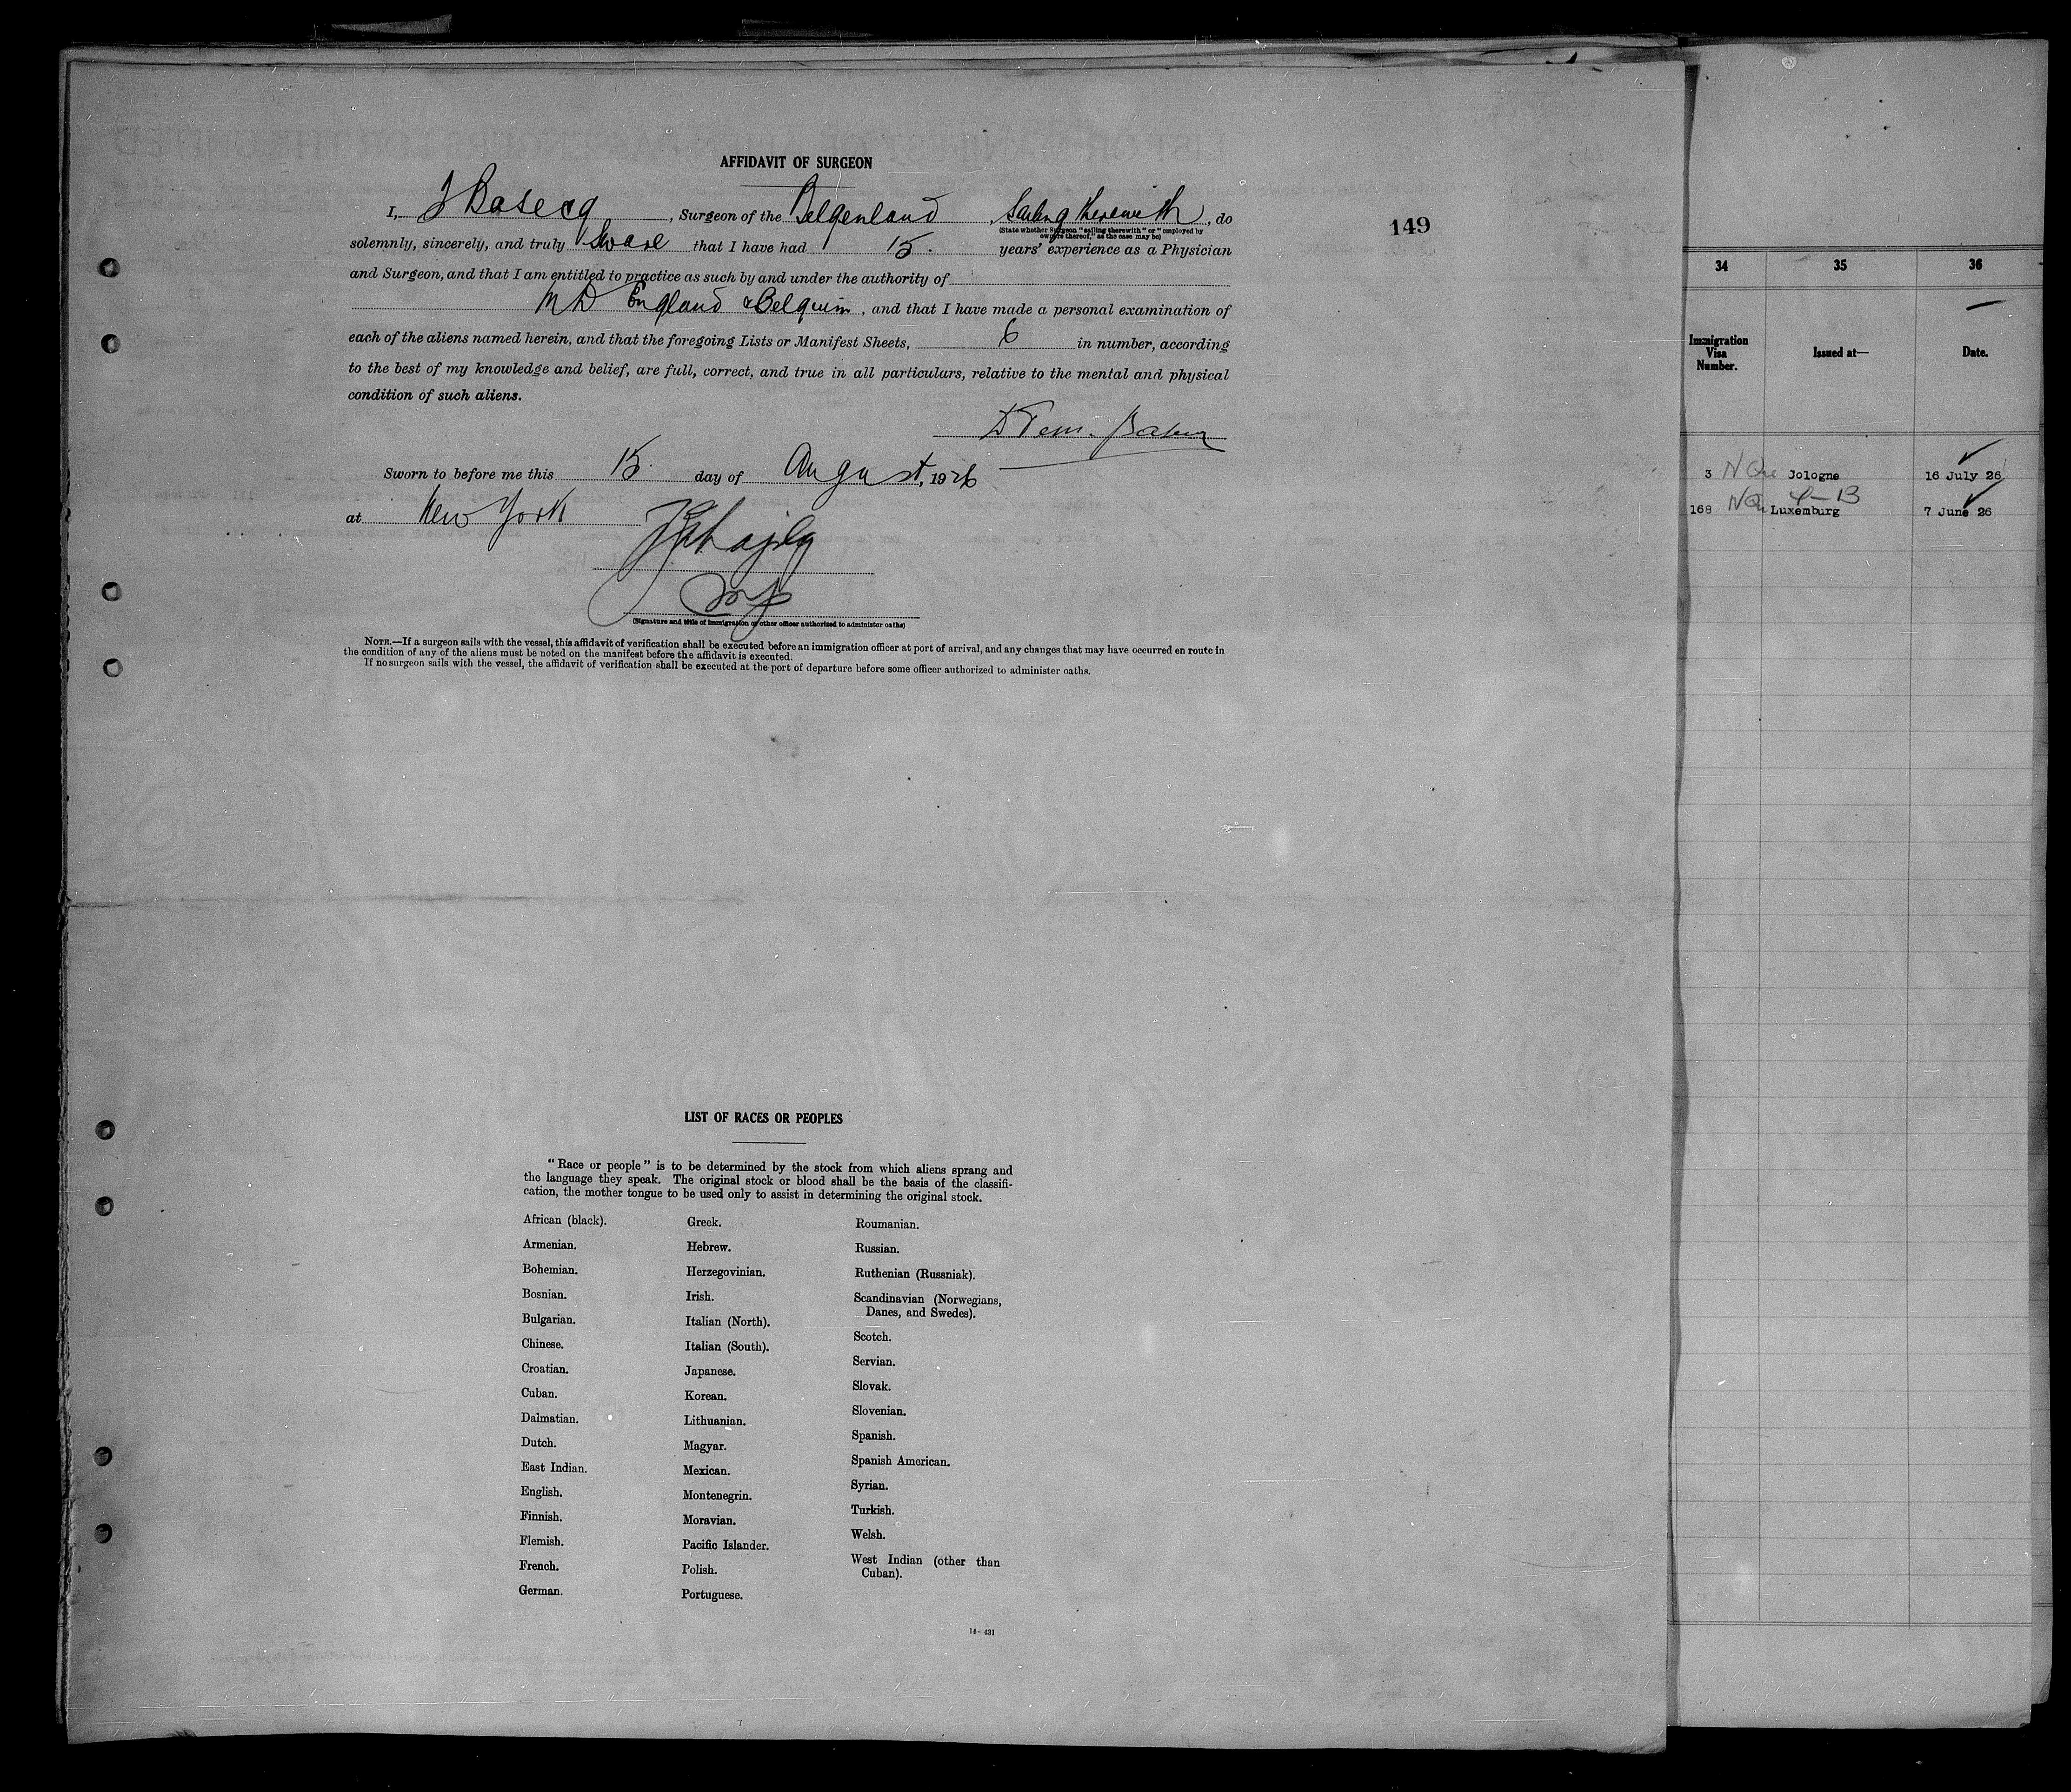 AFFIDAVIT OF SURGEON
I, , Surgeon of the Belgenland , Sailing therewith , do
(State whether Surgeon "sailing therewith" or "employed by
owners thereof," as the case may be)
149
solemnly, sincerely, and truly Sware that I have had 15. years' experience as a Physician
and Surgeon, and that I am entitled to practice as such by and under the authority of
MD England & Belguim , and that I have made a personal examination of
each of the aliens named herein, and that the foregoing Lists or Manifest Sheets, 6 in number, according
to the best of my knowledge and belief, are full, correct, and true in all particulars, relative to the mental and physical
condition of such aliens.
Sworn to before me this 15. day of August, 1926
at New York
(Signature and title of immigration or other officer authorized to administer oaths)
NOTE.—If a surgeon sails with the vessel, this affidavit of verification shall be executed before an immigration officer at port of arrival, and any changes that may have occurred en route in
the condition of any of the aliens must be noted on the manifest before the affidavit is executed.
If no surgeon sails with the vessel, the affidavit of verification shall be executed at the port of departure before some officer authorized to administer oaths.
LIST OF RACES OR PEOPLES
"Race or people" is to be determined by the stock from which aliens sprang and
the language they speak. The original stock or blood shall be the basis of the classifi-
cation, the mother tongue to be used only to assist in determining the original stock.
African (black).
Armenian.
Bohemian.
Bosnian.
Bulgarian.
Chinese.
Croatian.
Cuban.
Dalmatian.
Dutch.
East Indian.
English.
Finnish.
Flemish.
French.
German.
Greek.
Hebrew.
Herzegovinian.
Irish.
Italian (North).
Italian (South).
Japanese.
Korean.
Lithuanian.
Magyar.
Mexican.
Montenegrin.
Moravian.
Pacific Islander.
Polish.
Portuguese.
Roumanian.
Russian.
Ruthenian (Russniak).
Scandinavian (Norwegians,
Danes, and Swedes).
Scotch.
Servian.
Slovak.
Slovenian.
Spanish.
Spanish American.
Syrian.
Turkish.
Welsh.
West Indian (other than
Cuban).
14-431
34 35 36
Immigration
Visa
Number.
Issued at—
Date.
3 Cologne 16 July 26
4-13
168 Luxemburg 7 June 26